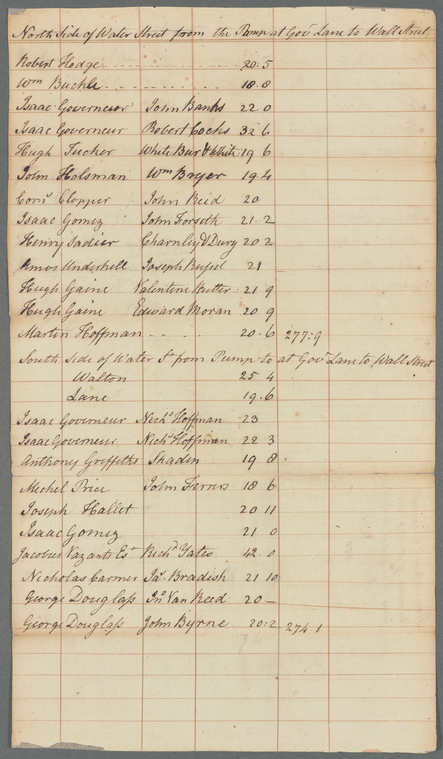 North Side of Water Street from the Pump at Gov.r Lane to Wall Street
Robert Hodge 20.5
Wm Buckle 18.8
Isaac Governeur John Banks 22 0
Isaac Governeur Robert Cocks 32.6
Hugh Tucker White Bur & White 19 6
John Holsman Wm Bryer 19.4
Corn.s Clopper John Reid 20
Isaac Gomez John Forseth 21.2
Henry Sadier Charnley & Dury 20 2
Amos Underhell Joseph 21
Hugh Gaine Valentine Nutter 21 9
Hugh Gaine Edward Moran 20 9
Martin Hoffman 20.6 277:9
South Side of Water St from Pump to at Gov.r Lane to Wall Street
Walton 25 4
Lane 19.6
Isaac Governeur Nich.s Hoffman 23
Isaac Governeur Nich.s Hoffman 22 3
Anthony Greffeths Skaden 19 8
Mechel Price John Ferrers 18 6
Joseph Hallet 20 11
Isaac Gomez 21 0
Jacobus Vazants Est Rich.d Yates 42.0
Nicholas Carmer Ja.s Bradish 21 10
George Douglass Jn.o Van Reed 20 –
George Douglass John Byrne 20:2 274.1